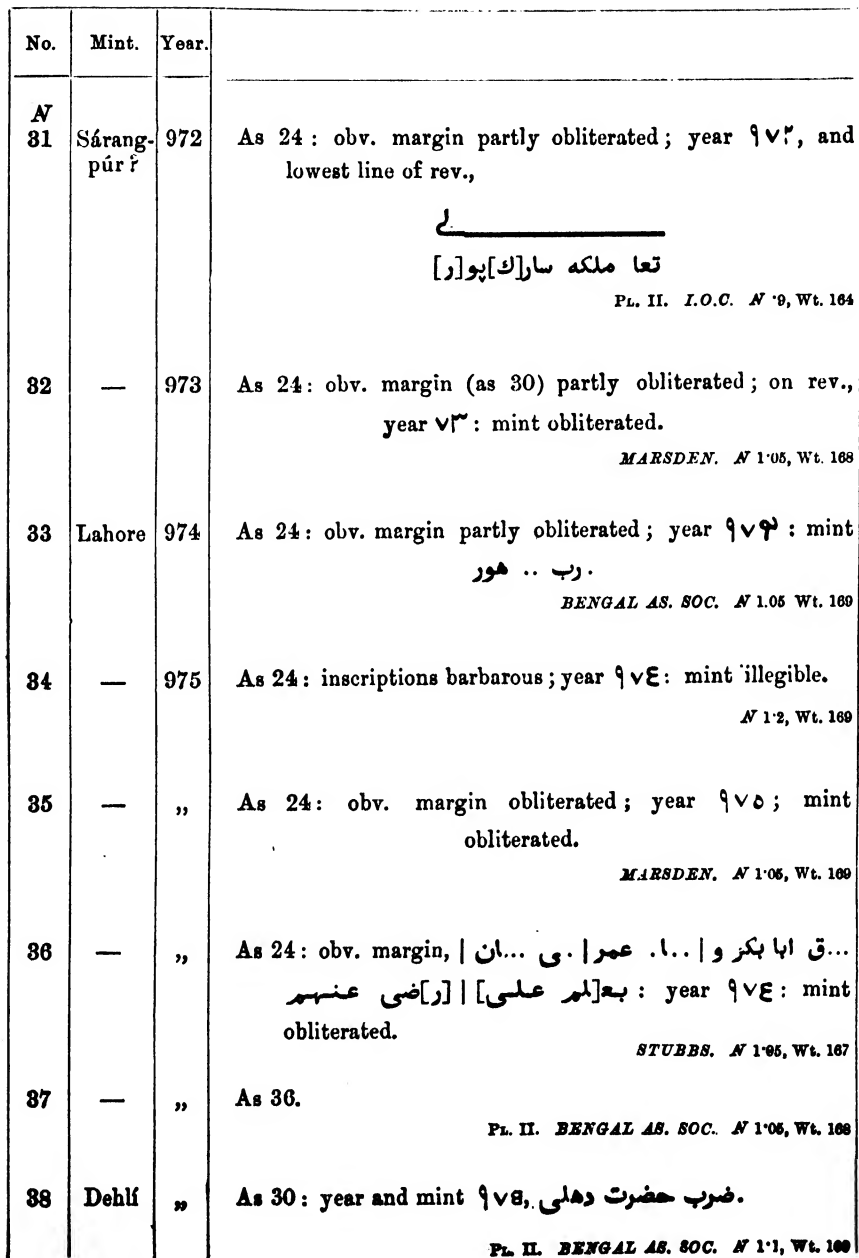 No. Mint. Year.
N
31 Sárang- 972 As 24 : obv. margin partly obliterated ; year ۹۷۲, and
púr ? lowest line of rev.,
لے
تعا ملكه سار[ك]پو[ر]
PL. II. I.O.C. N ·9, Wt. 164
32 — 973 As 24 : obv. margin (as 30) partly obliterated ; on rev.,
year ۷۳ : mint obliterated.
MARSDEN. N 1·05, Wt. 168
33 Lahore 974 As 24 : obv. margin partly obliterated ; year ۹۷۴ : mint
رب .. هور.
BENGAL AS. SOC. N 1.05 Wt. 169
34 — 975 As 24 : inscriptions barbarous ; year ۹۷ع : mint illegible.
N 1·2, Wt. 169
35 — ,, As 24 : obv. margin obliterated ; year ۹۷۵ ; mint
obliterated.
MARSDEN. N 1·05, Wt. 169
36 — ,, As 24 : obv. margin, ...ق ابا بكز و | ..ا. عمر | .ى ...ان |
بع[لم علـى] | [ر]ضى عنـهـم : year ۹۷ع : mint
obliterated.
STUBBS. N 1·05, Wt. 167
37 — ,, As 36.
PL. II. BENGAL AS. SOC. N 1·05, Wt. 168
38 Dehlí ,, As 30 : year and mint ۹۷۵, ضرب حضرت دهلى.
PL. II. BENGAL AS. SOC. N 1·1, Wt.